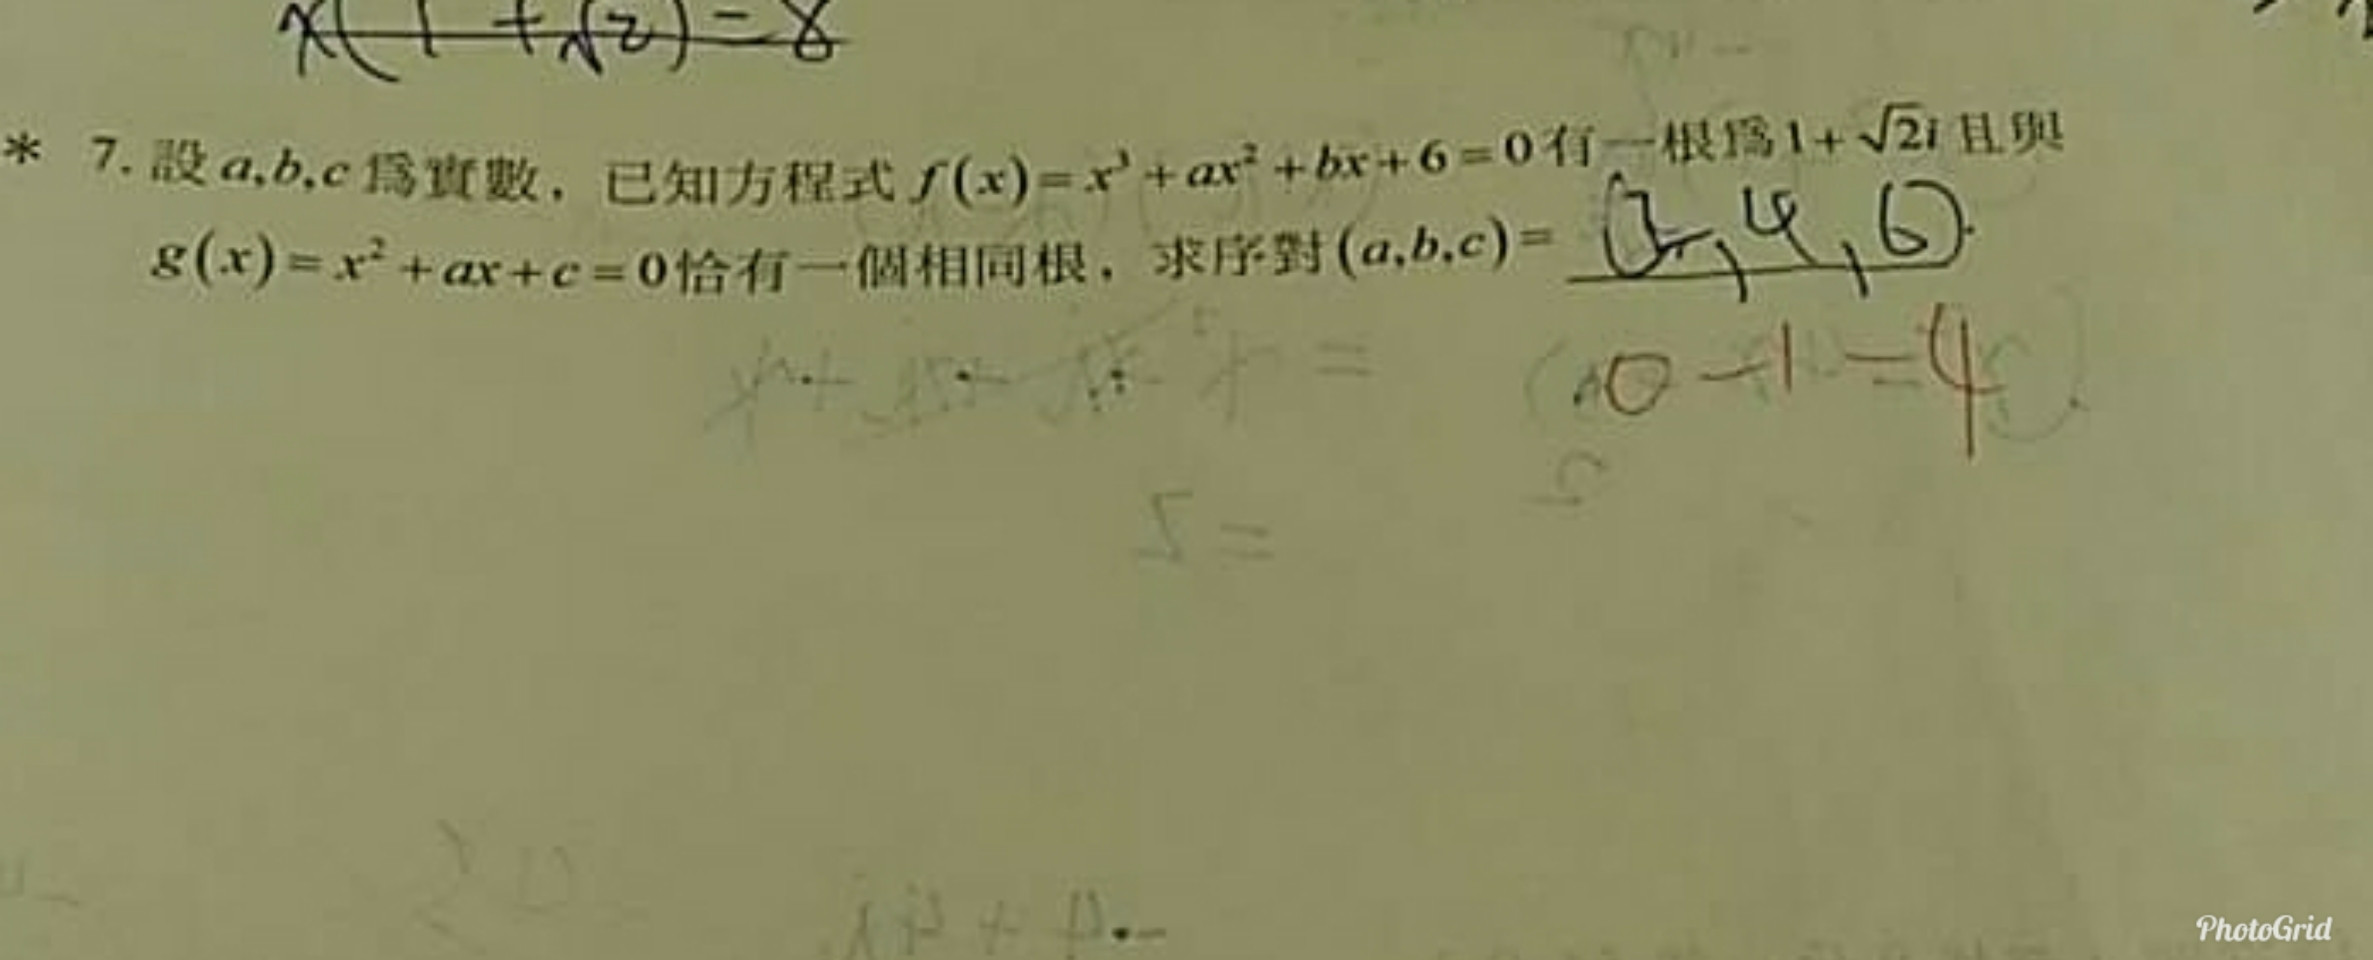 x(1+√2)=8
* 7. 設a,b,c為實數，已知方程式f(x)=x³+ax²+bx+6=0有一根為1+√2i且與
g(x)=x²+ax+c=0恰有一個相同根，求序對(a,b,c)= ( ,4,6).
0 -1 -4
PhotoGrid